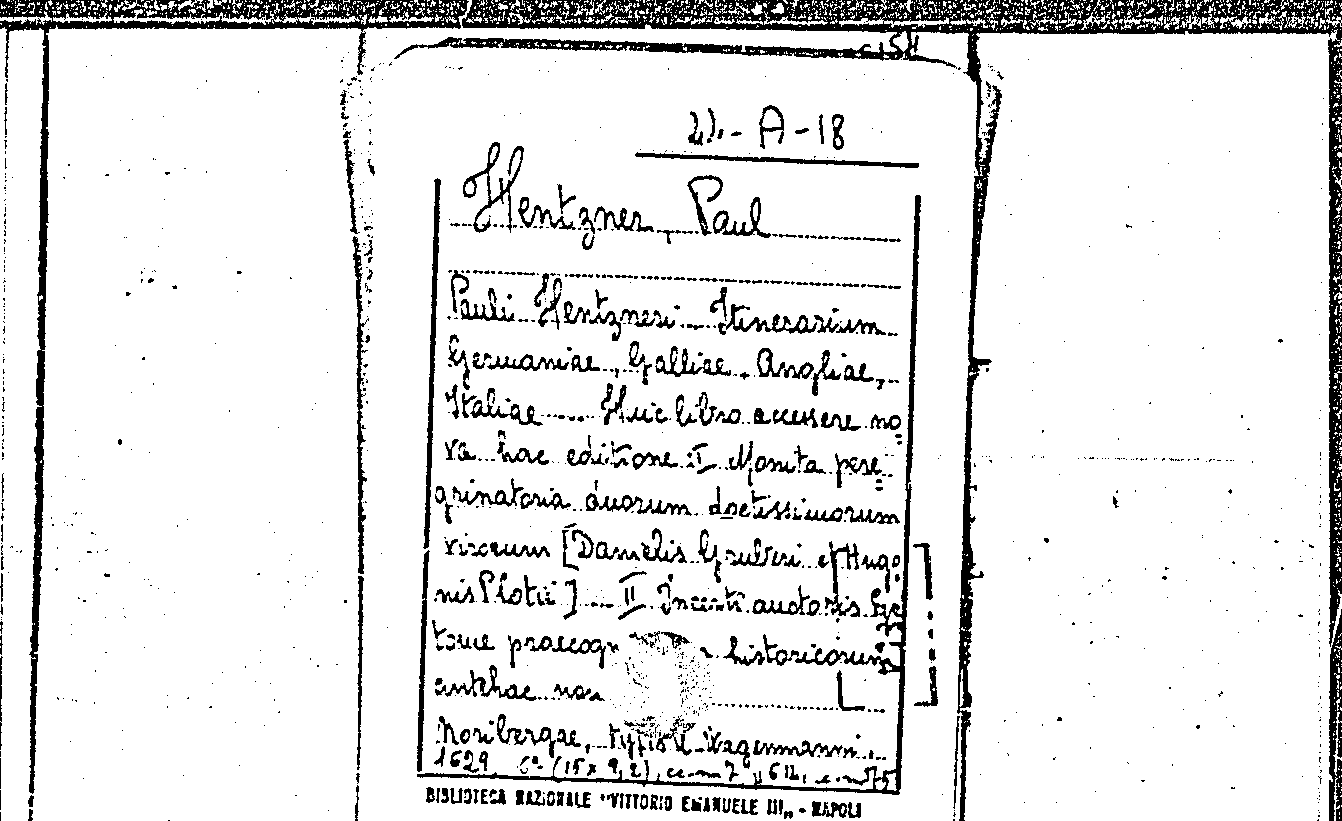 A-18
Hentzner, Paul
Pauli Hentzneri Itinerarium
Germaniae, Galliae, Angliae,
Italiae .... Huic libro accessere no
va hac editione I Monita pere
grinatoria duorum doctissimorum
virorum [Danielis Gruberi et Hugo
nis Plotii] ... II Incerti auctoris Epi
tome praecogn historicorum
antehac non
Noribergae, typis Wagenmanni,
1629
BIBLIOTECA NAZIONALE "VITTORIO EMANUELE III" - NAPOLI